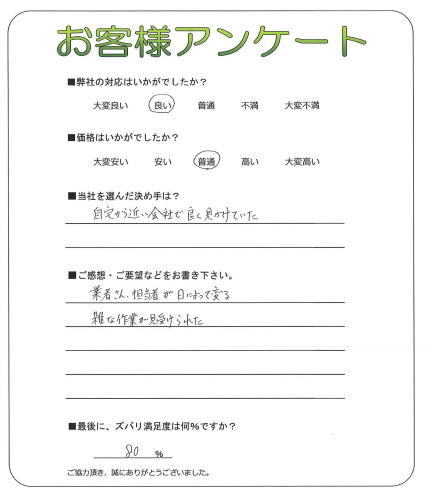 お客様アンケート
■弊社の対応はいかがでしたか？
大変良い 良い 普通 不満 大変不満
■価格はいかがでしたか？
大変安い 安い 普通 高い 大変高い
■当社を選んだ決め手は？
自宅から近い会社で良く見かけていた
■ご感想・ご要望などをお書き下さい。
業者さん、担当者が日によって変る
雑な作業が見受けられた
■最後に、ズバリ満足度は何%ですか？
80 %
ご協力頂き、誠にありがとうございました。